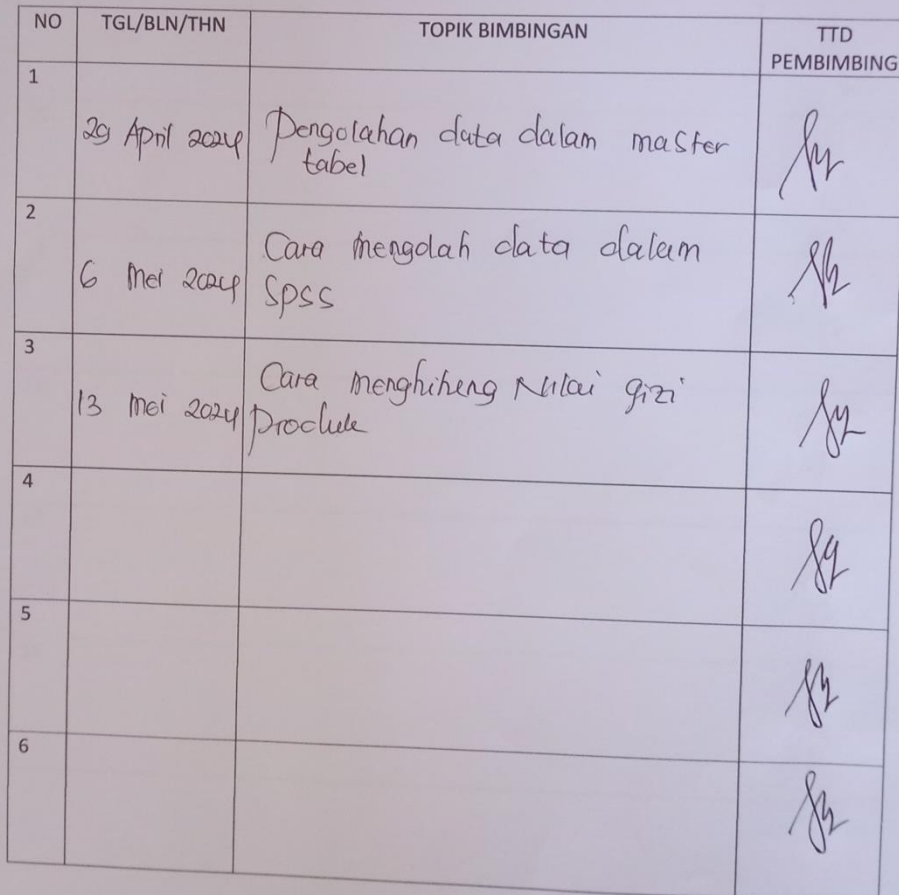 NO TGL/BLN/THN TOPIK BIMBINGAN TTD
PEMBIMBING
1
29 April 2024 Pengolahan data dalam master
tabel
2
Cara mengolah data dalam
6 Mei 2024 SPSS
3
Cara menghiheng Nilai gizi
13 Mei 2024 Produk
4
5
6